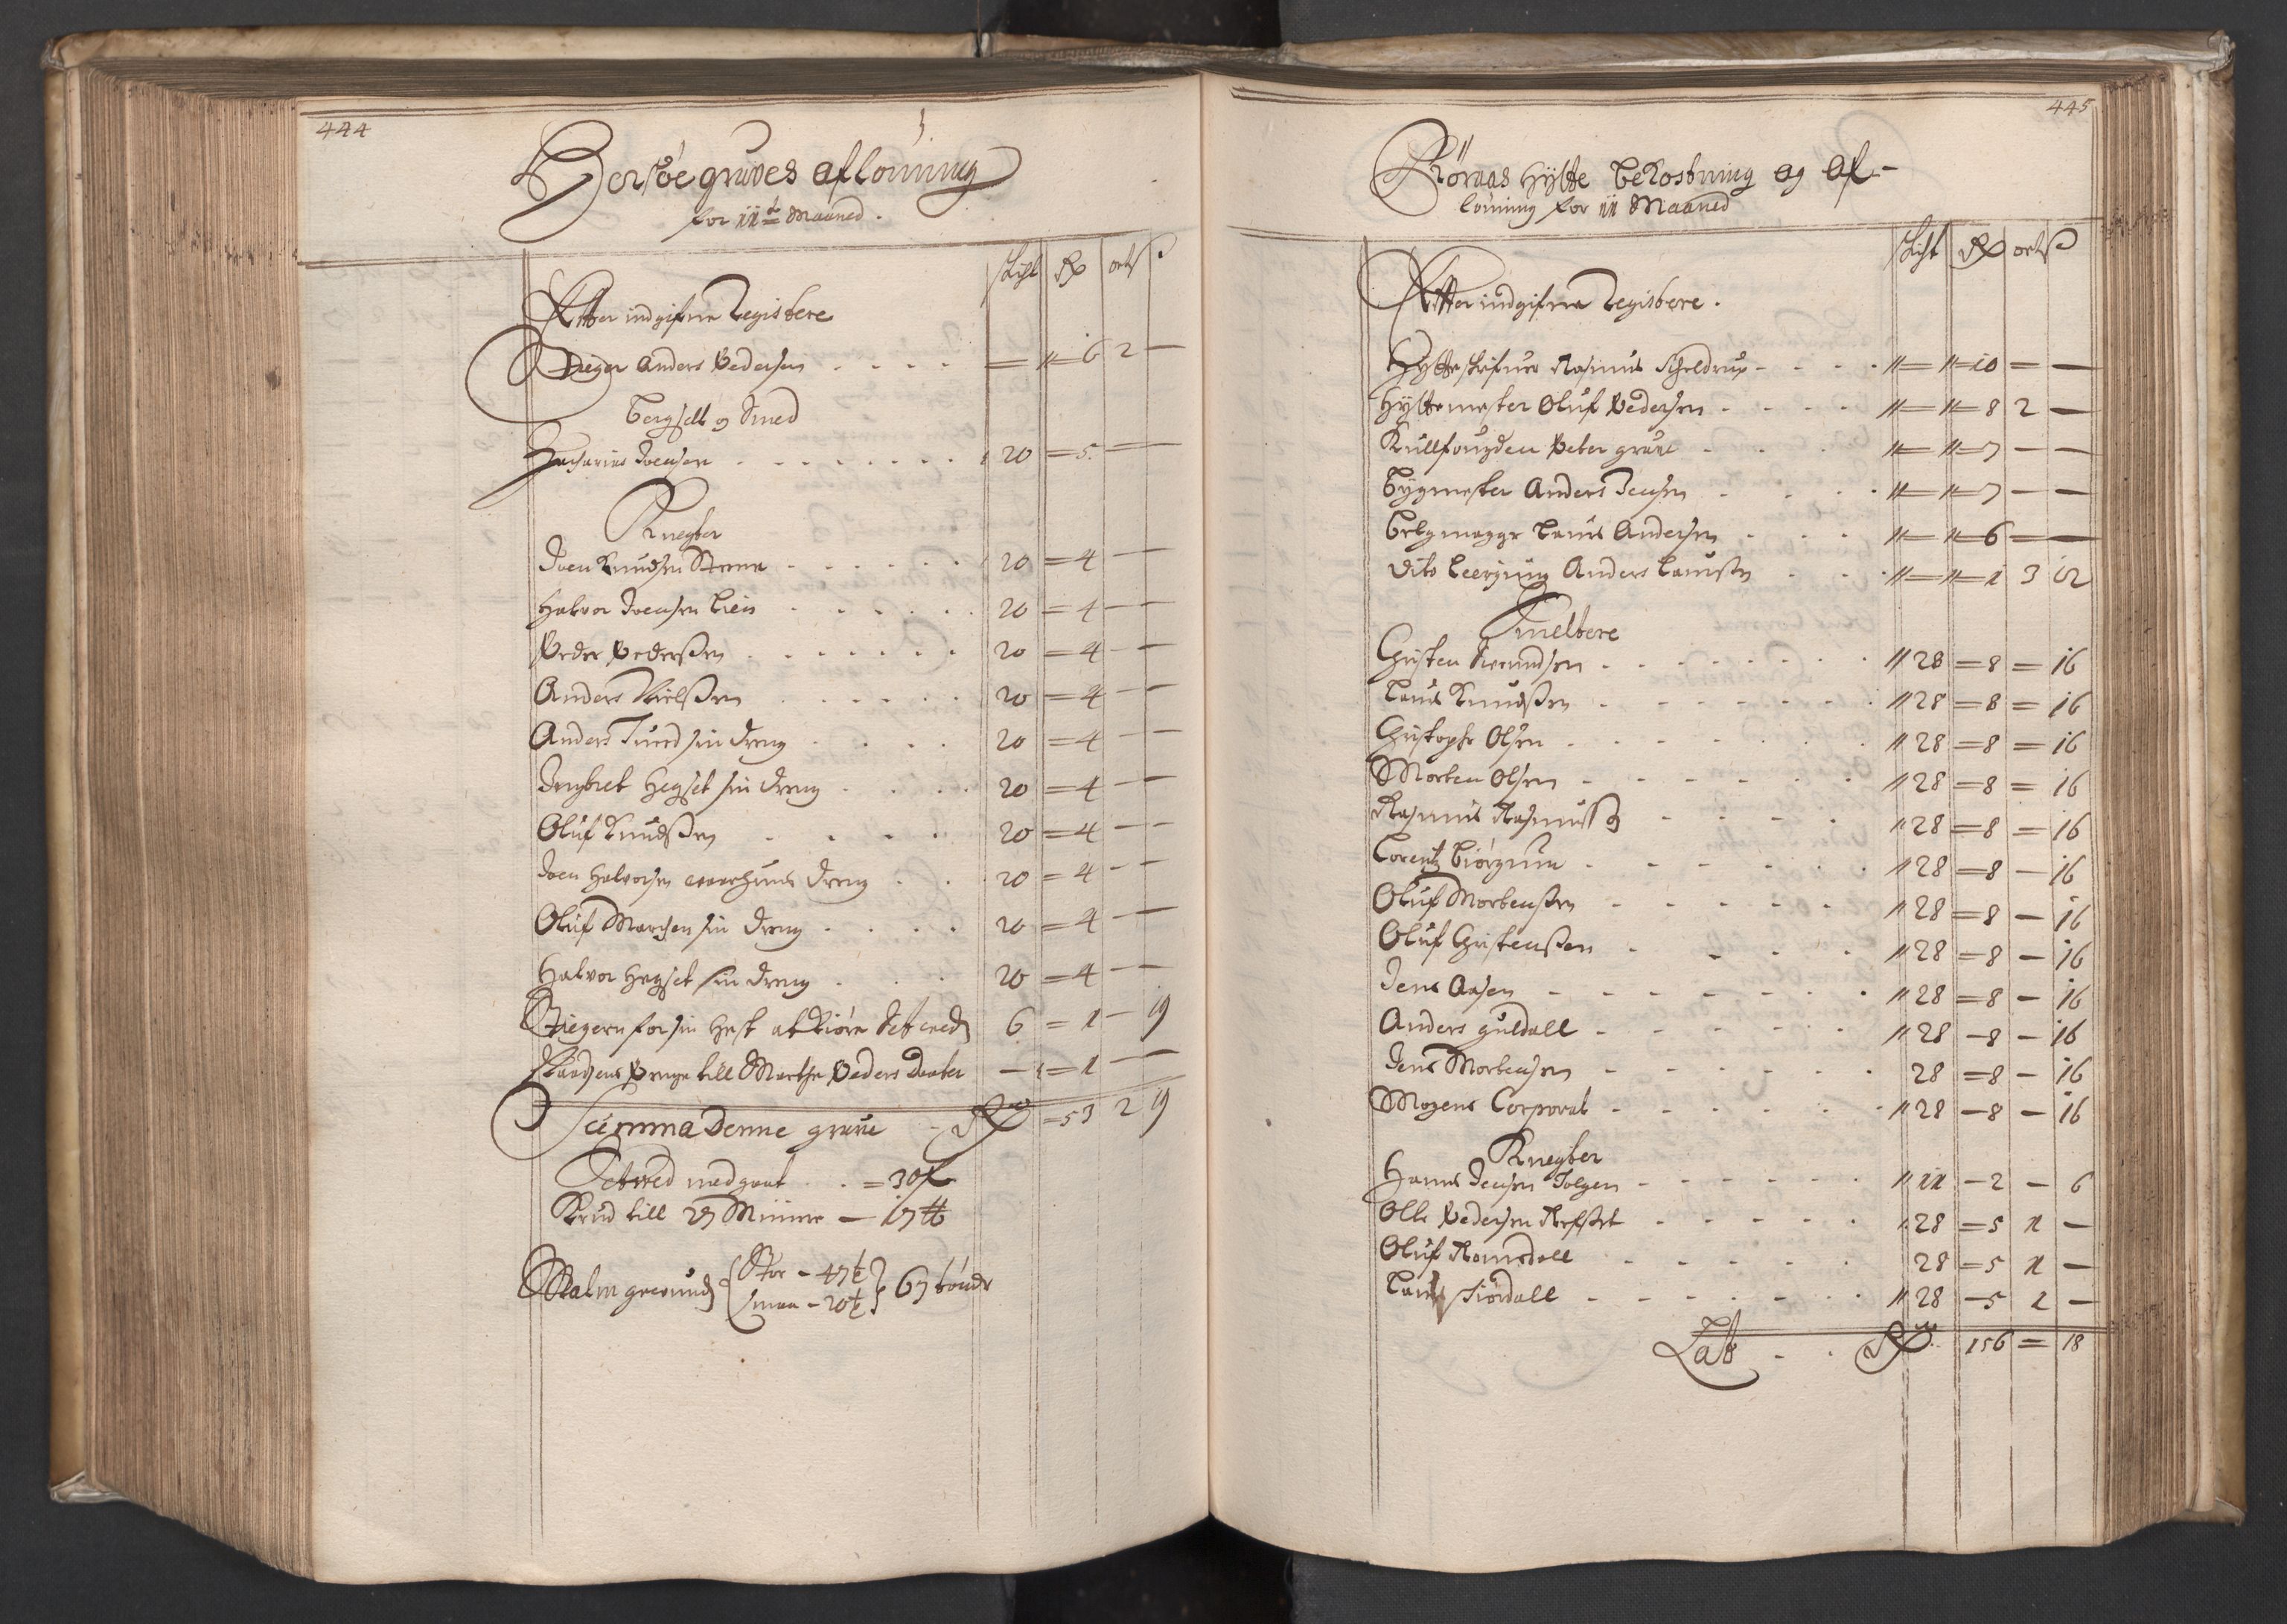 444
Hersöe gruves aflöning
for 11te Maaned.
skiht Rdr ort ß
Effter indgifne Registere
Stieger Anders Pedersen . . . . = 6 2 —
Bergsell og Smed
Zacharias Joensen . . . . 20 = 5 —
Knegter
Joen Knudsen . . . . 20 = 4 — —
Halvor Joensen Lien . . . . 20 = 4 — —
Peder Pederßen . . . . 20 = 4 — —
Anders Nielßen . . . . 20 = 4 — —
Anders Tued sin dreng . . . . 20 = 4 — —
Ingbret Hegset sin dreng . . . . 20 = 4 — —
Oluf Knudßen . . . . 20 = 4 — —
Joen Halvorsen dreng . . . 20 = 4 — —
Oluf Marchen sin dreng . . . . 20 = 4 — —
Halvor Hegset sin dreng . . . 20 = 4 — —
Stiegeren for sin Hest at kiöre Setteved 6 = 1 — 19
penge till Marthe Peders Daater — = 1 — —
Summa denne grube - Rdr = 53 2 19
Setteved medgaat . . = 30 f
Krud till 27 Miinner — 17 ℔
Malm gewundj { Stor – 47½ / smaa – 20½ } 67 tönder
445
Röraas Hytte bekostning og af-
löning for 11 Maaned
skiht Rdr ort ß
Effter indgifne Registere.
Hytteskrifuer Rasmus Scheldrup - - - . = = 10 = —
Hyttemester Oluf Pedersen - . . . = = 8 2 —
Kullfougden Peter grube - . . = = 7 — —
Bygmester Anders Jensen . . . = = 7 — —
Belgmager Laurs Andersen . . . = = 6 — —
Dito Leerjung Anders Laurßen . . = = 1 3 12
Smeltere
Christen Swendsen . . . . 28 = 8 = 16
Laurs Knudßen . . . . 28 = 8 = 16
Christopher Olsen . . . . 28 = 8 = 16
Morten Olsen - - - - 28 = 8 = 16
Rasmus Rasmußen - - - 28 = 8 = 16
Lorentz Biörgum - - - - 28 = 8 — 16
Oluf Mortenßen - - - - 28 = 8 — 16
Oluf Christenßen - - - . 28 = 8 — 16
Jens Aasen - - - - 28 = 8 — 16
Anders guldall - - - - 28 — 8 — 16
Jens Mortensen - - - - 28 = 8 — 16
Mogens Corporal - - - - 28 — 8 — 16
Knegter
Hans Jensen Tolgen - - - - 11 — 2 — 6
Olle Pedersen Refset - - - - 28 = 5 1 —
Oluf Romsdall - - - - 28 = 5 1 —
Laurs Stördall - - - - 28 — 5 1 —
Lats - . Rdr 156 = 18